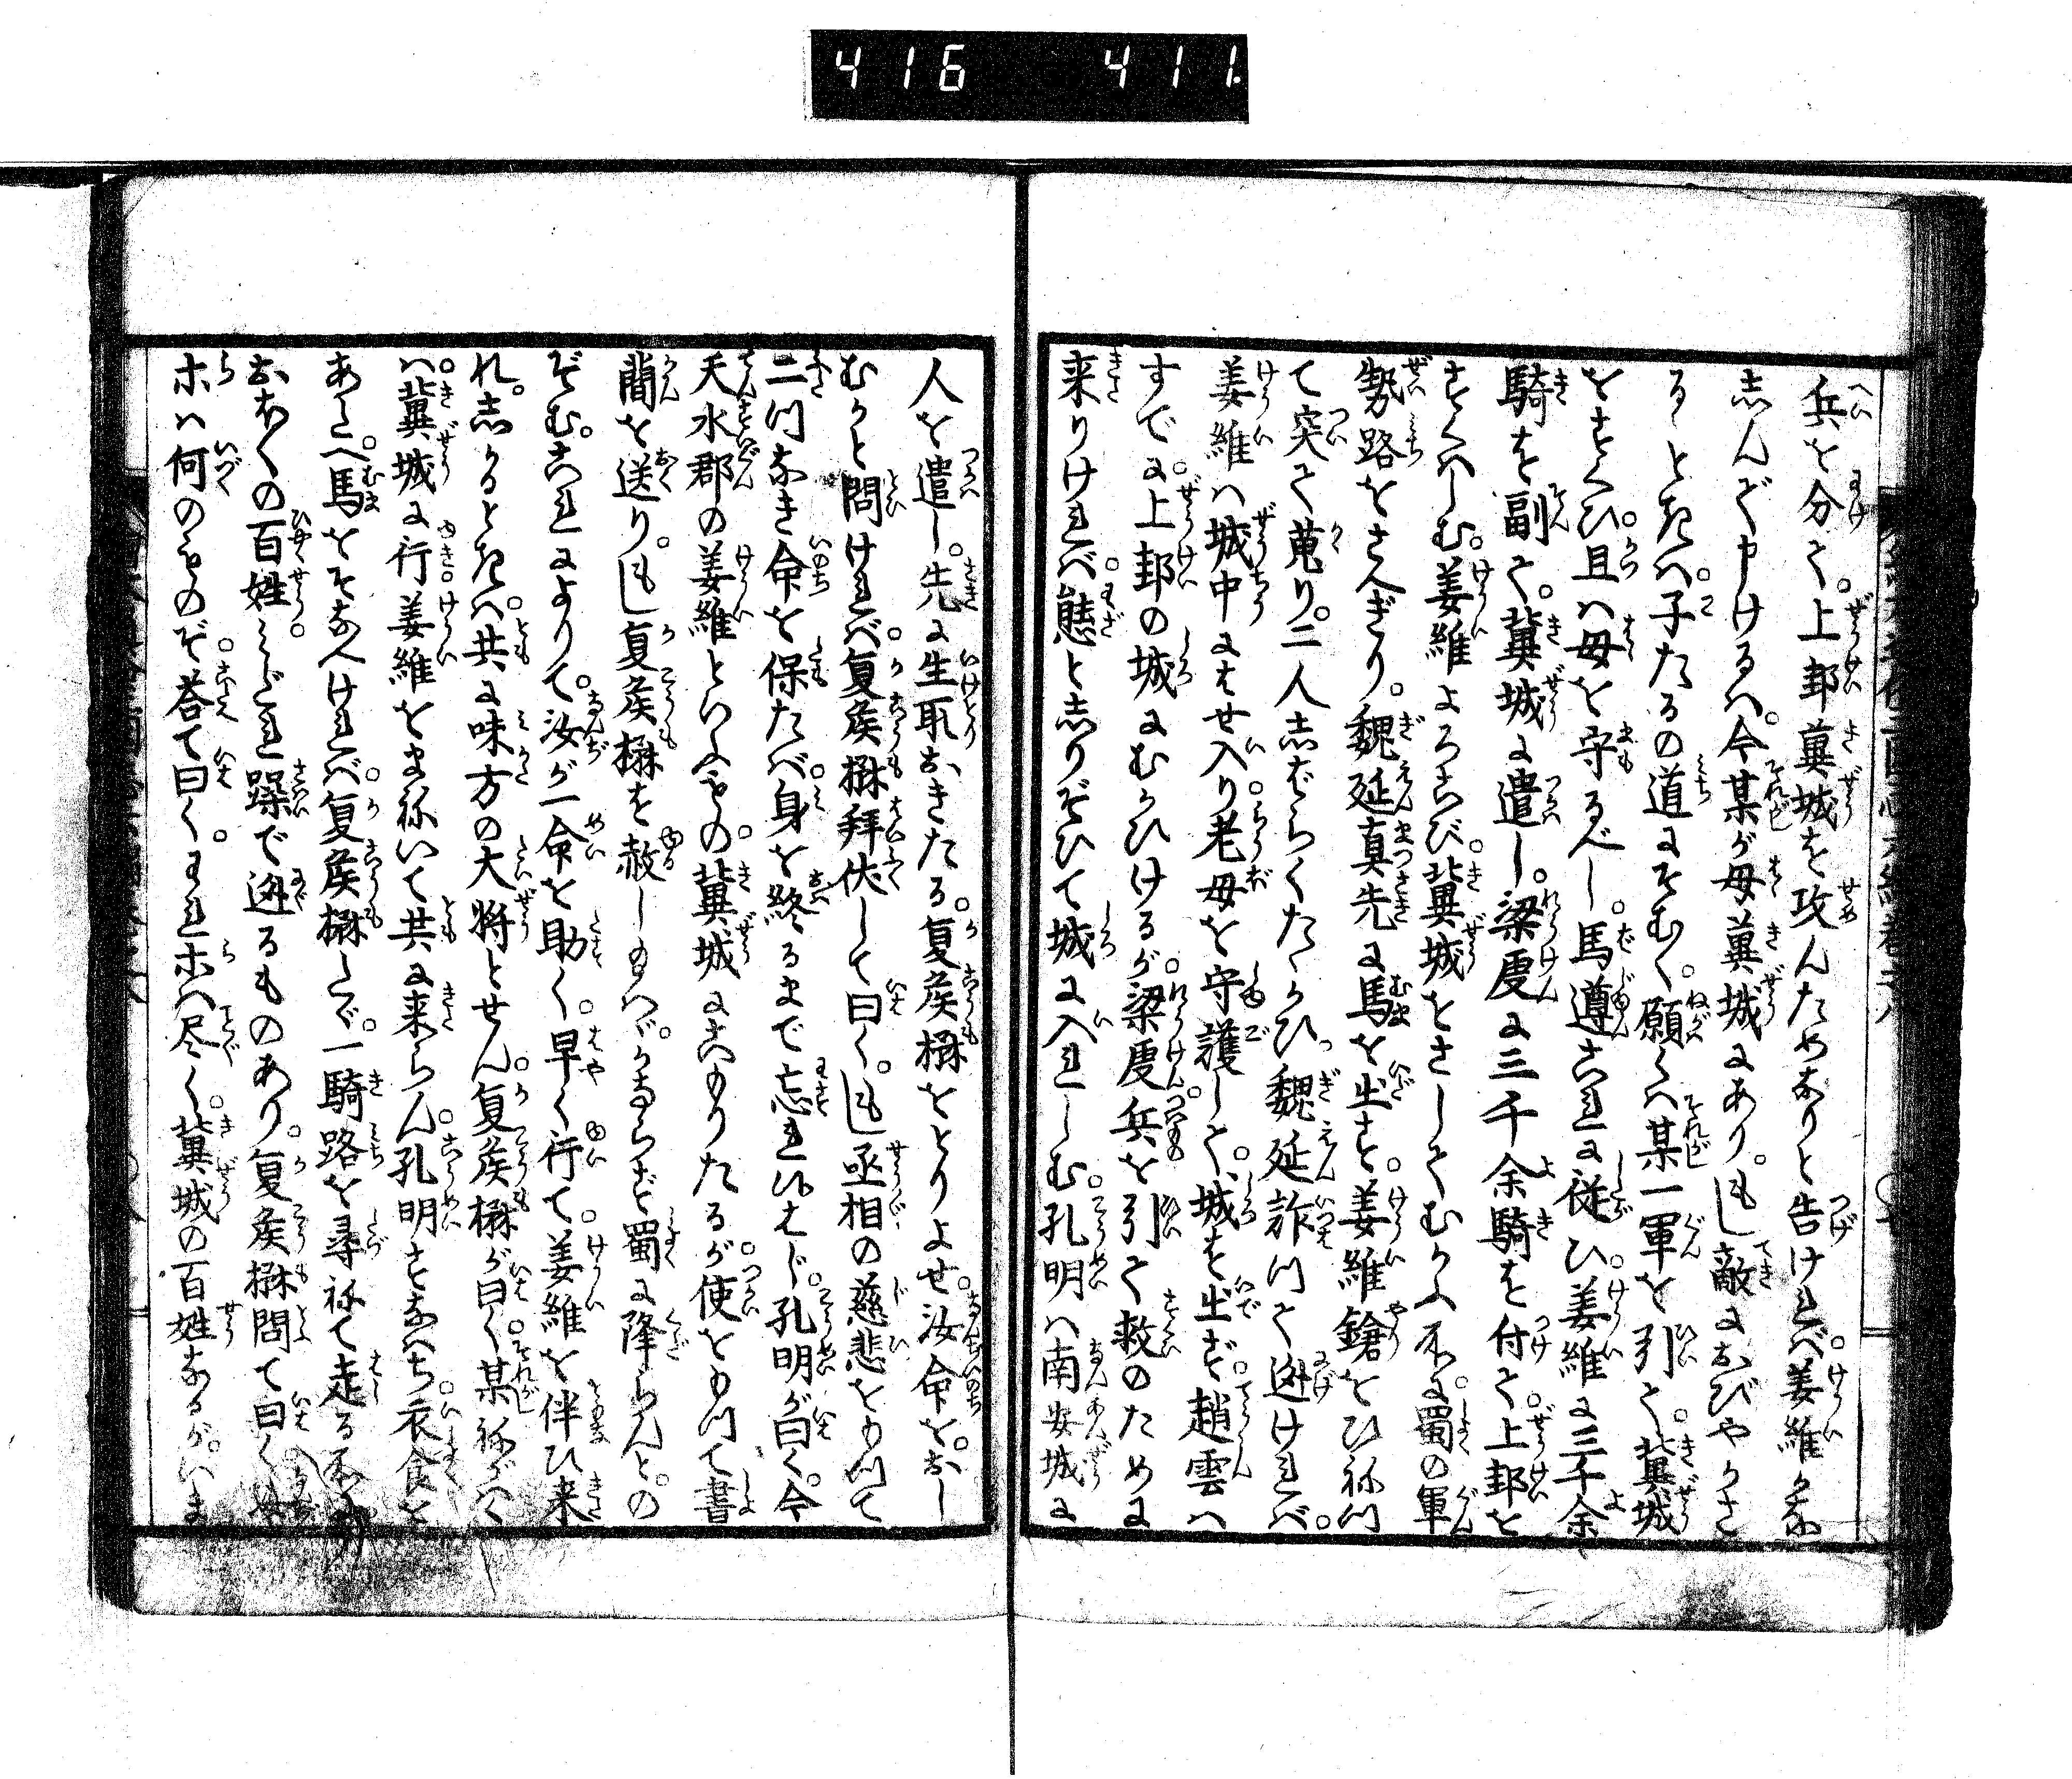 416 411
兵を分て。上邽冀城を攻んためなりと告ければ。姜維かな
しんで申けるは。今某が母冀城にあり。もし敵におびやかさ
るゝときは。子たるの道にそむく。願くは某一軍を引て。冀城
をすくひ。且は母を守るべし。馬遵これに従ひ。姜維に三千余
騎を副て。冀城に遣し。梁虔に三千余騎を付て。上邽を
すくはしむ。姜維よろこび。冀城をさしてむかふ所に。蜀の軍
勢路をさへぎり。魏延真先に馬を出す。姜維鎗をひねつ
て突て蒐り。二人しばらくたゝかひ。魏延詐つて迯ければ。
姜維は城中にはせ入り老母を守護して。城を出ず。趙雲は
すでに。上邽の城にむかひけるが。梁虔兵を引て救のために
来りければ。態としりぞひて城に入れしむ。孔明は南安城に
人を遣し。先に生取おきたる。夏侯楙をとりよせ。汝命を。おし
むかと問ければ。夏侯楙拝伏して曰く。もし丞相の慈悲をもつて
二つなき命を保たば。身を終るまで忘れ候はじ。孔明が曰く。今
天水郡の姜維といふもの。冀城にこもりたるが。使をもつて書
簡を送り。もし夏侯楙を赦しもはゞ。かならず蜀に降らんと。の
ぞむ。これによりて。汝が一命を助く。早く行て。姜維を伴ひ来
れ。しかるときは。共に味方の大将とせん。夏侯楙が曰く。某ねがはく
は。冀城に行。姜維をまねいて共に来らん。孔明すなはち。衣食を
あたへ。馬をそなへければ。夏侯楙たゞ。一騎路を尋ねて走る所に。
おほくの百姓。みだれ躁で迯るものあり。夏侯楙問て曰く。汝
ホは何のものぞ。荅て曰く。われホは尽く。冀城の百姓なるが。いま